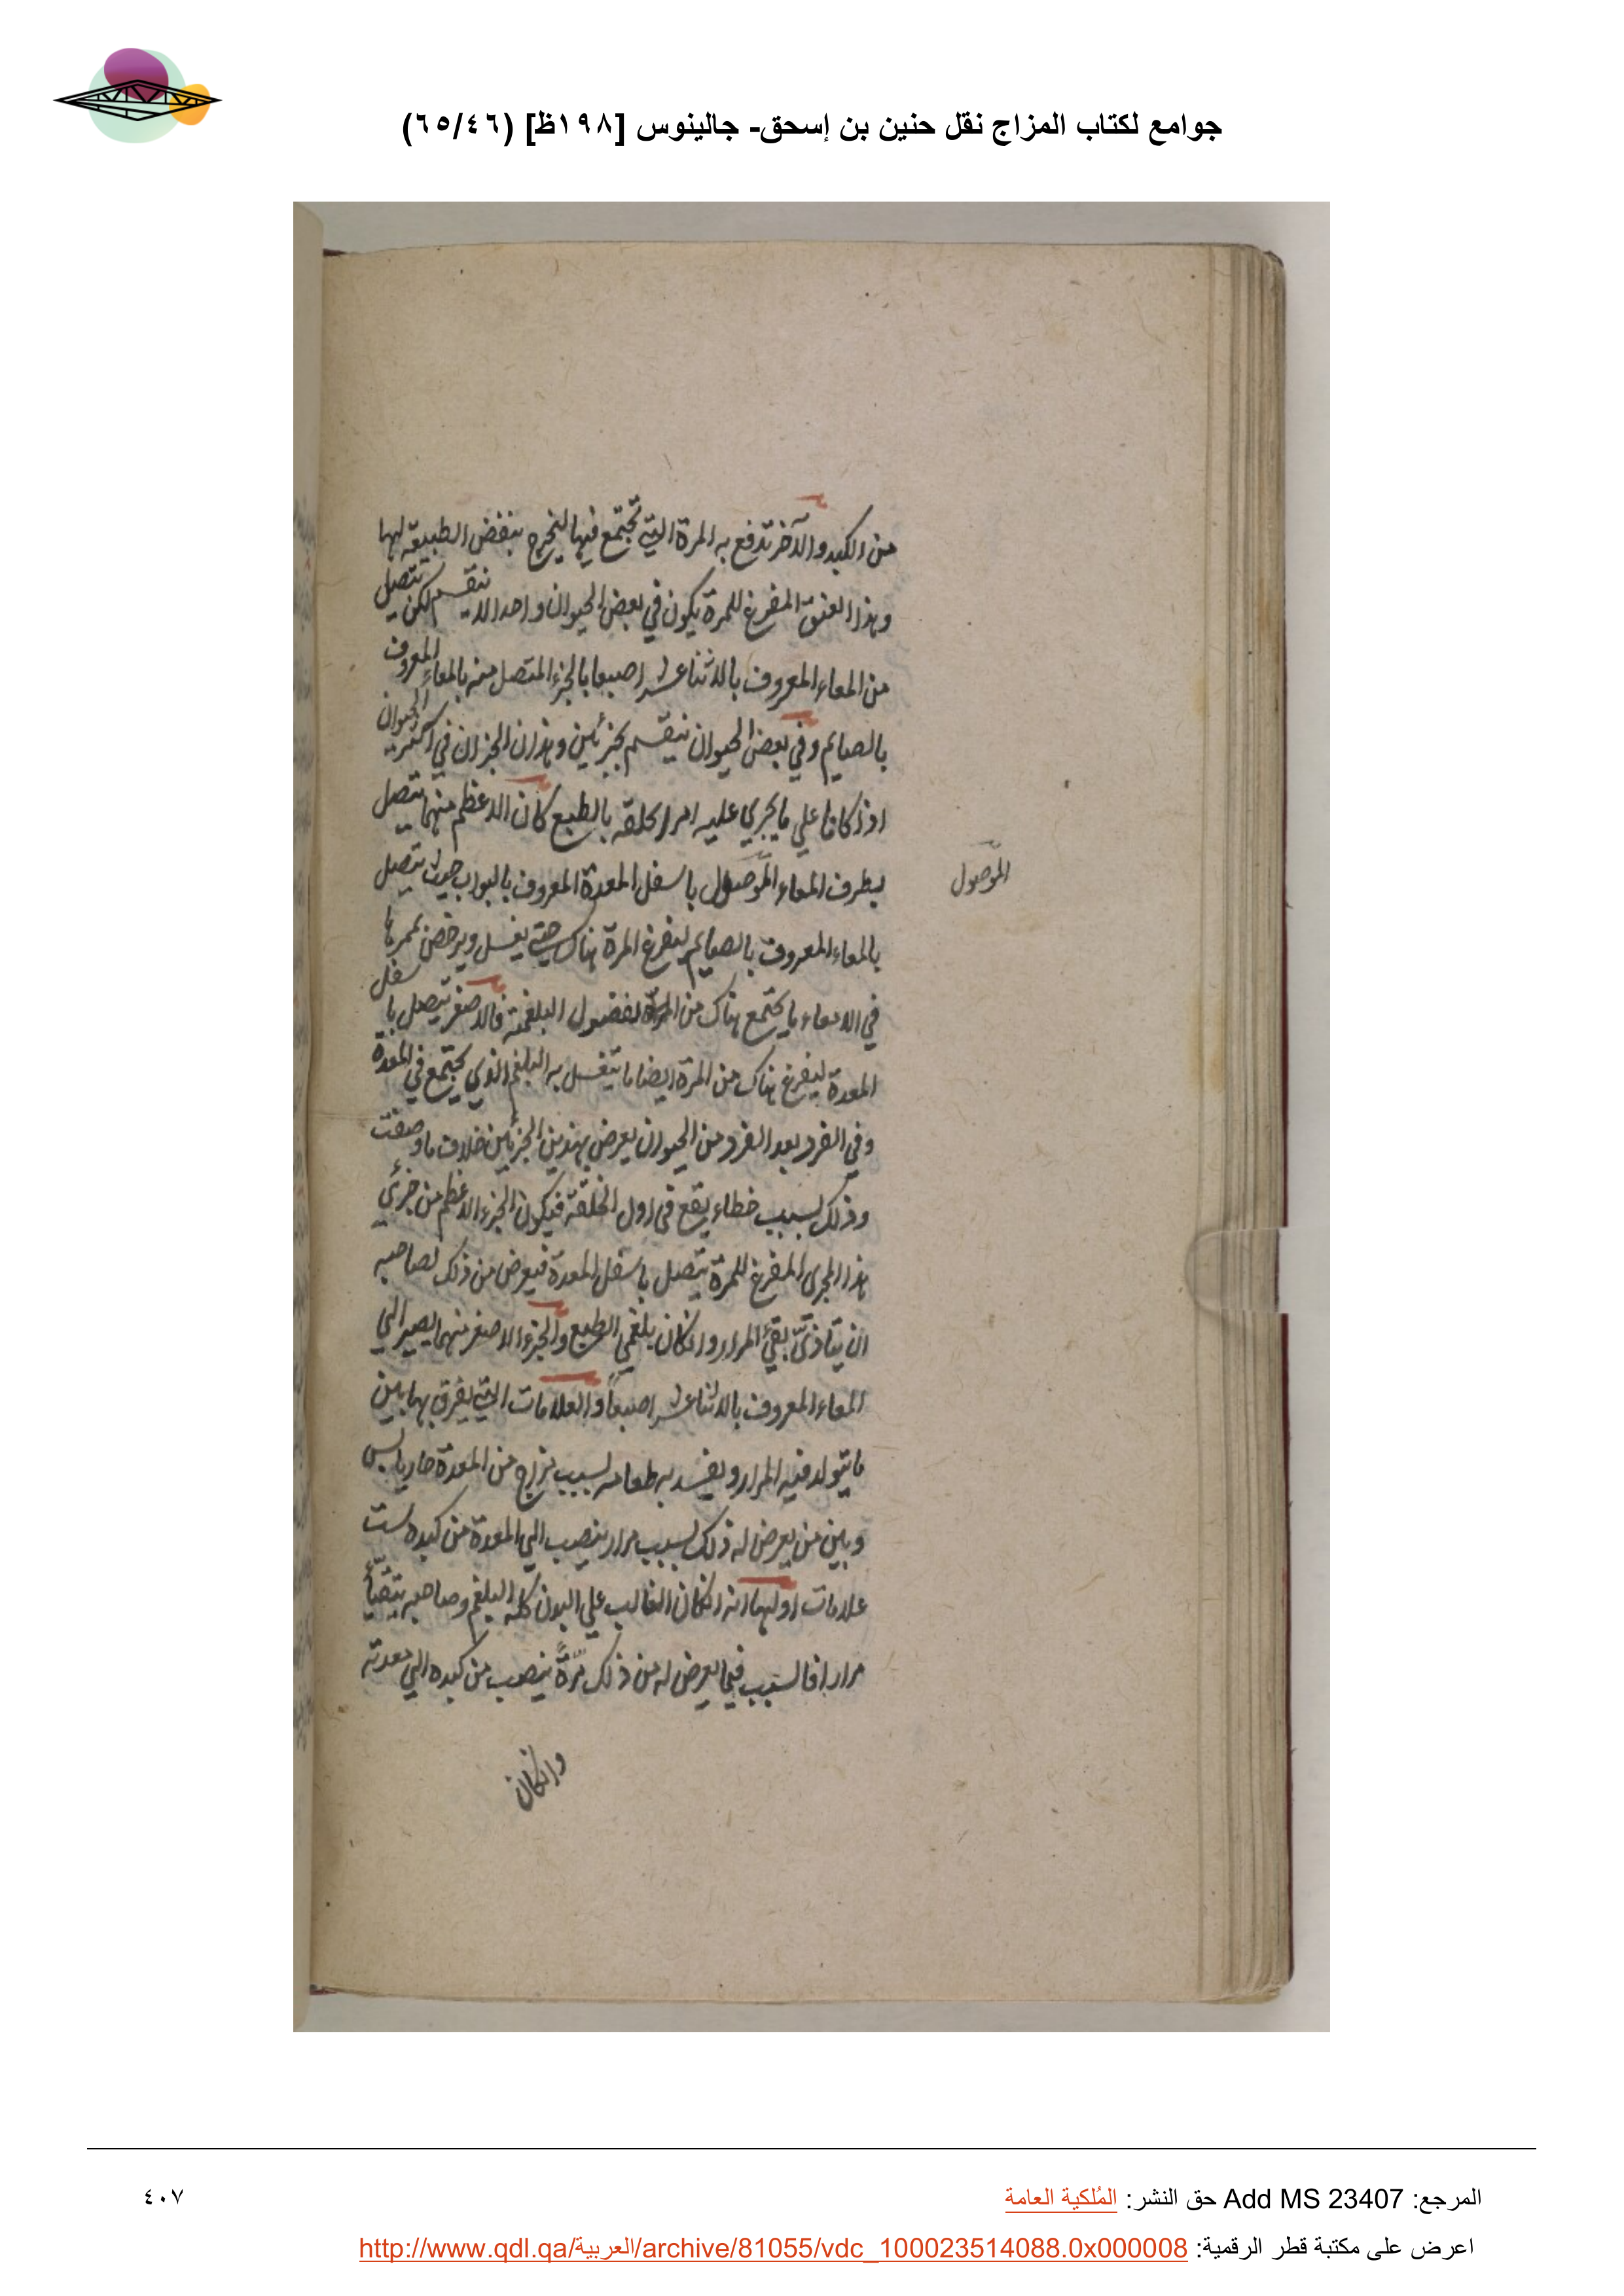 جوامع لكتاب المزاج نقل حنين بن إسحق- جالينوس [١٩٨ظ] (٦٥/٤٦)
من الكبد والآخر تدفع به المرة التي تجتمع فيها ليخرج بنفض الطبيعة لها
وهذا العنق المفرغ للمرة يكون في بعض الحيوان واحدا لا ينقسم لكن يتصل
من المعاء المعروف بالاثنا عشر اصبعا بالجزء المتصل منه بالمعاء المعروف
بالصايم وفي بعض الحيوان ينقسم بجزئين وهذان الجزان في اكثر الحيوان
اذ كانا علي ما يجري عليه امر الخلقة بالطبع كان الاعظم منهما يتصل
بطرف المعاء الموصول باسفل المعدة المعروف بالبواب حيث يتصل
الموصول
بالمعاء المعروف بالصايم ليفرغ المرة هناك حتي يغسل ويرخص بممرها
في الامعاء ما يجتمع هناك من الفضول البلغمية فالاصغر يتصل باسفل
المعدة ليفرغ هناك من المرة ايضا ما يتغسل به البلغم الذي يجتمع في المعدة
وفي الفرد بعد الفرد من الحيوان يعرض بهذين الجزئين خلاف ما وصفت
وذلك بسبب خطاء يقع في اول الخلقة فيكون الجزء الاعظم من جزئي
هذا المجري المفرغ للمرة يتصل باسفل المعدة فيعرض من ذلك لصاحبه
ان يتاذي بقئ المرار وانكان بلغمي الطبع والجزء الاصغر منهما يصير الي
المعاء المعروف بالاثنا عشر اصبعا والعلامات التي يفرق بها بين
ما يتولد فيه المرار ويفسد به طعامه بسبب مزاج من المعدة حار يابس
وبين من يعرض له ذلك بسبب مرار ينصب الي المعدة من كبده ست
علامات اولها انه انكان الغالب علي البدن كله البلغم وصاحبه يتقيأ
مرارا فالسبب فيما يعرض له من ذلك مرة ينصب من كبده الي معدته
وانكان
المرجع: Add MS 23407 حق النشر: المُلكية العامة
٤٠٧
اعرض على مكتبة قطر الرقمية: http://www.qdl.qa/العربية/archive/81055/vdc_100023514088.0x000008